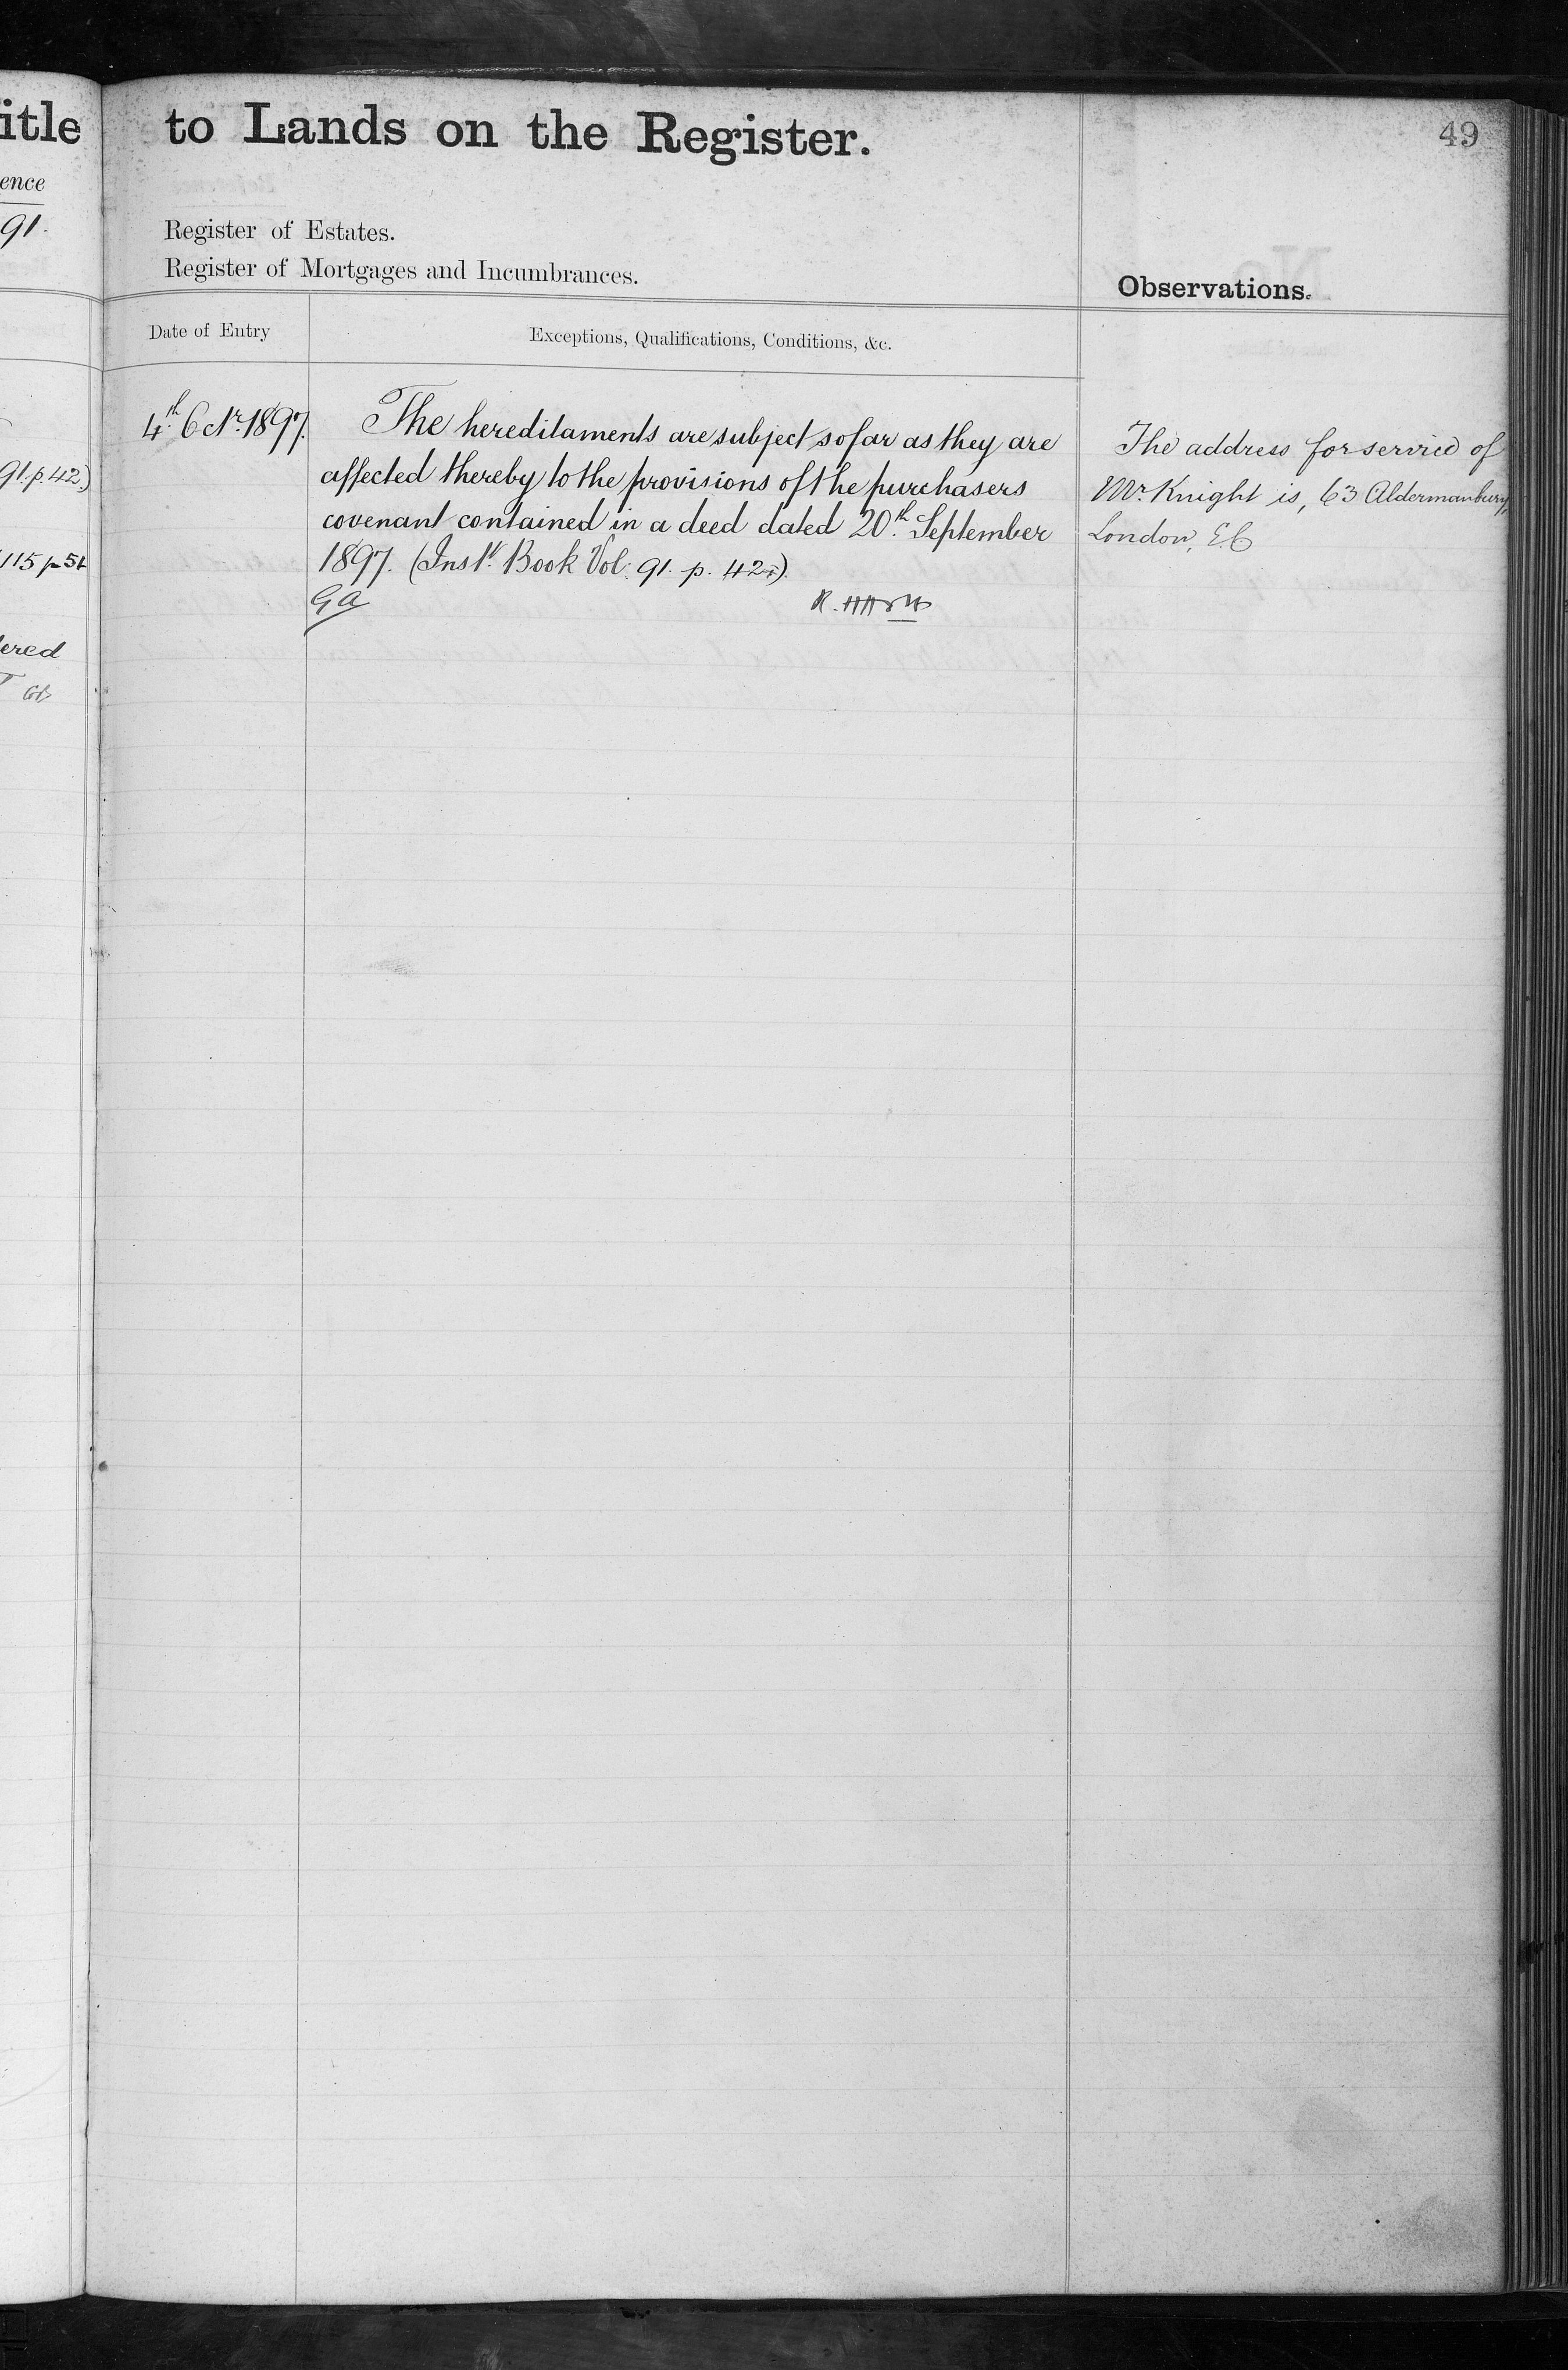 itle
ence
91.
91. p. 42.)
115 p 51
ered
to Lands on the Register.
49
Register of Estates.
Register of Mortgages and Incumbrances.
Observations.
Date of Entry
Exceptions, Qualifications, Conditions, &c.
4th Octr. 1897.
The hereditaments are subject so far as they are
affected thereby to the provisions of the purchasers
covenant contained in a deed dated 20th September
1897. (Inst. Book Vol. 91. p. 42).
GA
The address for service of
Mr. Knight is, 63 Aldermanbury,
London, E.C